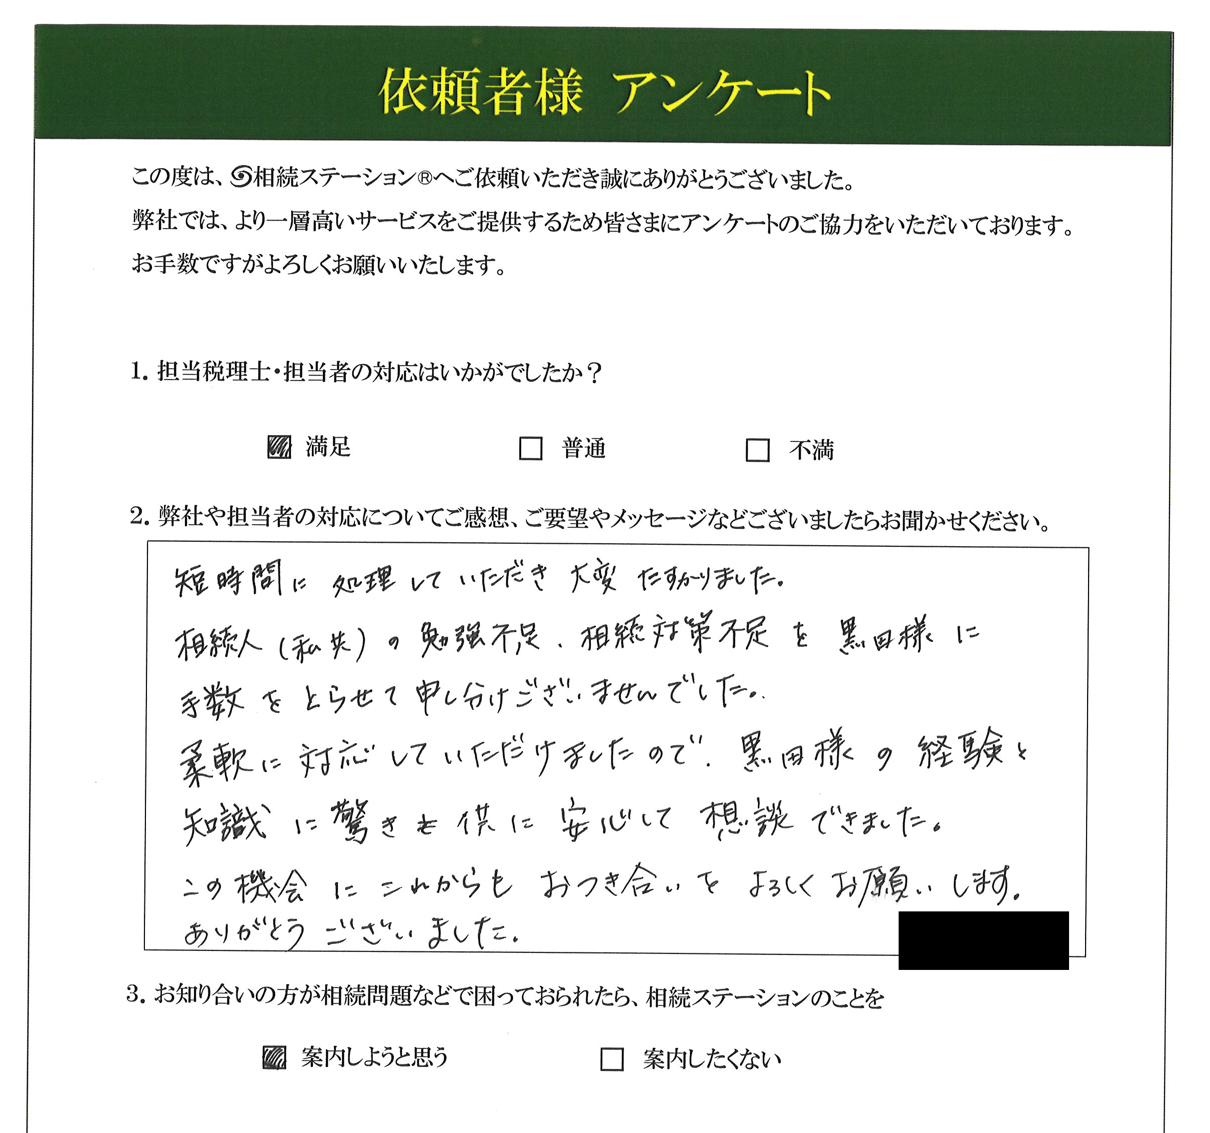 依頼者様 アンケート
この度は、相続ステーション®へご依頼いただき誠にありがとうございました。
弊社では、より一層高いサービスをご提供するため皆さまにアンケートのご協力をいただいております。
お手数ですがよろしくお願いいたします。
1. 担当税理士・担当者の対応はいかがでしたか?
満足 普通 不満
2. 弊社や担当者の対応についてご感想、ご要望やメッセージなどございましたらお聞かせください。
短時間に処理していただき大変たすかりました。
相続人(私共)の勉強不足、相続対策不足を黒田様に
手数をとらせて申し分けございませんでした。
柔軟に対応していただけましたので、黒田様の経験と
知識に驚きも供に安心して想談できました。
この機会にこれからもおつき合いをよろしくお願いします。
ありがとうございました。
3. お知り合いの方が相続問題などで困っておられたら、相続ステーションのことを
案内しようと思う 案内したくない